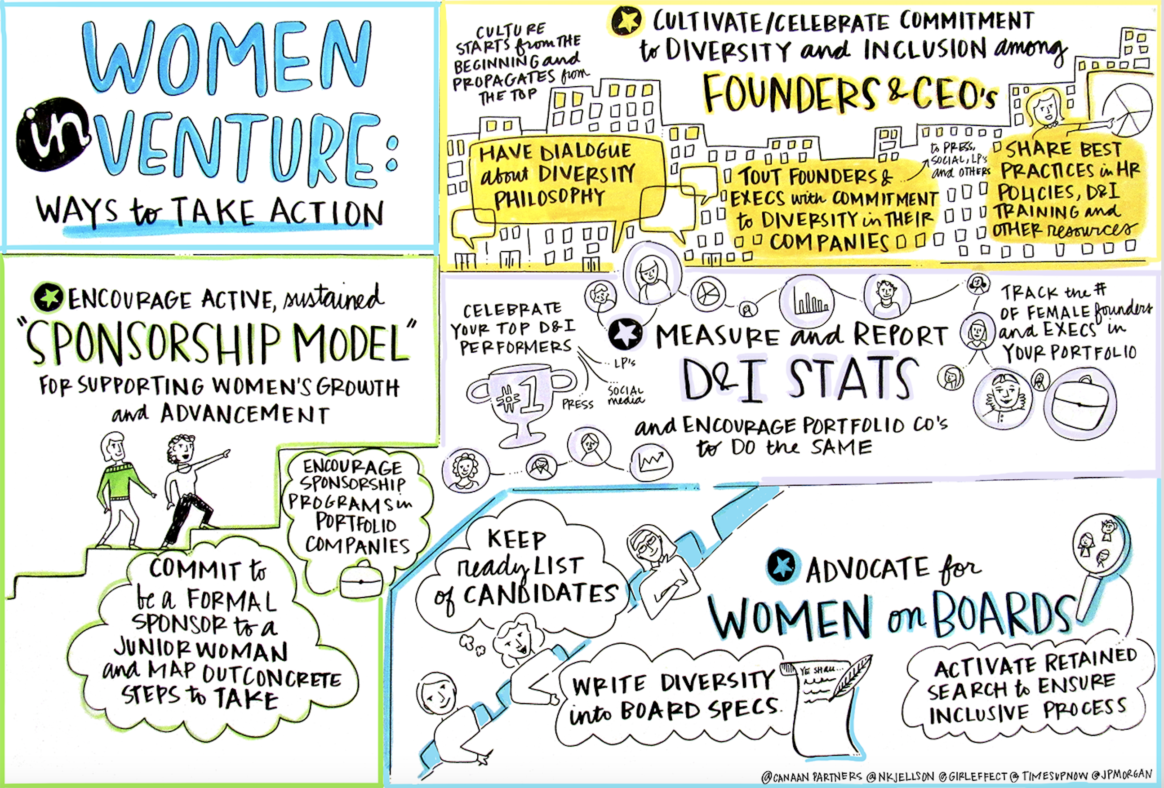 WOMEN
in VENTURE:
WAYS to TAKE ACTION
CULTURE
STARTS from THE
BEGINNING and
PROPAGATES from
THE TOP
CULTIVATE/CELEBRATE COMMITMENT
to DIVERSITY and INCLUSION among
FOUNDERS & CEO's
HAVE DIALOGUE
about DIVERSITY
PHILOSOPHY
TOUT FOUNDERS &
EXECS with COMMITMENT
to DIVERSITY in THEIR
COMPANIES
to PRESS,
SOCIAL, LP's
and OTHERS
SHARE BEST
PRACTICES in HR
POLICIES, D&I
TRAINING and
OTHER resources
ENCOURAGE ACTIVE, sustained
"SPONSORSHIP MODEL"
FOR SUPPORTING WOMEN'S GROWTH
and ADVANCEMENT
ENCOURAGE
SPONSORSHIP
PROGRAMS in
PORTFOLIO
COMPANIES
COMMIT to
be a FORMAL
SPONSOR to a
JUNIOR WOMAN
and MAP OUT CONCRETE
STEPS to TAKE
CELEBRATE
YOUR TOP D&I
PERFORMERS
LP's
SOCIAL
media
PRESS
#1
MEASURE and REPORT
D&I STATS
and ENCOURAGE PORTFOLIO CO's
to DO the SAME
TRACK the #
OF FEMALE founders
and EXECS in
YOUR PORTFOLIO
KEEP
ready LIST
of CANDIDATES
ADVOCATE for
WOMEN on BOARDS
WRITE DIVERSITY
into BOARD SPECS.
YE SHALL...
ACTIVATE RETAINED
SEARCH to ENSURE
INCLUSIVE PROCESS
@CANAAN PARTNERS @NKJELLSON @GIRLEFFECT @TIMESUPNOW @JPMORGAN